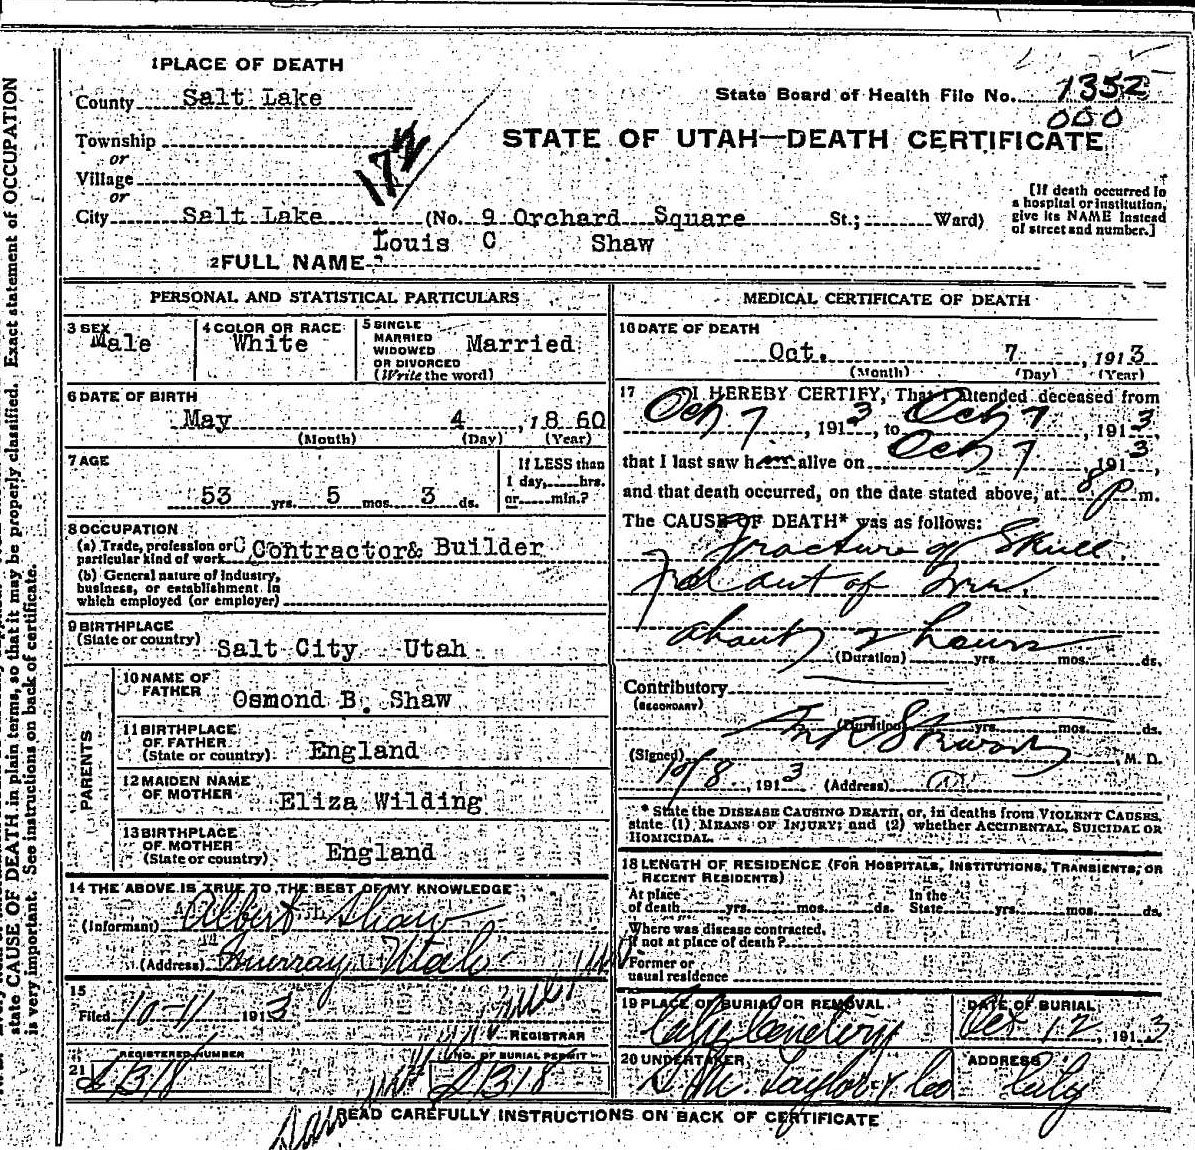 state CAUSE OF DEATH in plain terms, so that it may be properly classified. Exact statement of OCCUPATION
is very important. See instructions on back of certificate.
1 PLACE OF DEATH
County Salt Lake
State Board of Health File No. 1352
000
Township
or
Village
or
172
STATE OF UTAH—DEATH CERTIFICATE
City Salt Lake (No. 9 Orchard Square St.; Ward)
[If death occurred in
a hospital or institution,
give its NAME instead
of street and number.]
Louis C Shaw
2 FULL NAME
PERSONAL AND STATISTICAL PARTICULARS
3 SEX
Male
4 COLOR OR RACE
White
5 SINGLE
MARRIED
WIDOWED
OR DIVORCED
(Write the word)
Married
6 DATE OF BIRTH
May 4, 1860
(Month) (Day) (Year)
7 AGE
53 yrs. 5 mos. 3 ds.
If LESS than
1 day, hrs.
or min.?
8 OCCUPATION
(a) Trade, profession or
particular kind of work C Contractor& Builder
(b) General nature of Industry,
business, or establishment in
which employed (or employer)
9 BIRTHPLACE
(State or country) Salt City Utah
PARENTS
10 NAME OF
FATHER Osmond B. Shaw
11 BIRTHPLACE
OF FATHER
(State or country) England
12 MAIDEN NAME
OF MOTHER Eliza Wilding
13 BIRTHPLACE
OF MOTHER
(State or country) England
14 THE ABOVE IS TRUE TO THE BEST OF MY KNOWLEDGE
(Informant) Albert L Shaw
(Address) Murray Utah
15
Filed 10-11 1913
REGISTRAR
REGISTERED NUMBER
21 S1318
NO. OF BURIAL PERMIT
S1318
MEDICAL CERTIFICATE OF DEATH
16 DATE OF DEATH
Oct. 7, 1913
(Month) (Day) (Year)
17 I HEREBY CERTIFY, That I attended deceased from
Oct 7, 1913, to Oct 7, 1913,
that I last saw him alive on Oct 7 1913,
and that death occurred, on the date stated above, at 8 P m.
The CAUSE OF DEATH* was as follows:
Fracture of Skull.
Fall out of Tree.
about 2 hours
(Duration) yrs. mos. ds.
Contributory
(SECONDARY)
(Duration) yrs. mos. ds.
(Signed) M. D.
10/8, 1913 (Address)
* State the DISEASE CAUSING DEATH, or, in deaths from VIOLENT CAUSES,
state (1) MEANS OF INJURY; and (2) whether ACCIDENTAL, SUICIDAL OR
HOMICIDAL.
18 LENGTH OF RESIDENCE (FOR HOSPITALS, INSTITUTIONS, TRANSIENTS, OR
RECENT RESIDENTS)
At place In the
of death yrs. mos. ds. State yrs. mos. ds.
Where was disease contracted,
if not at place of death?
Former or
usual residence
19 PLACE OF BURIAL OR REMOVAL
City Cemetery
DATE OF BURIAL
Oct 12, 1913
20 UNDERTAKER
S. M. Taylor & Co
ADDRESS
City
READ CAREFULLY INSTRUCTIONS ON BACK OF CERTIFICATE